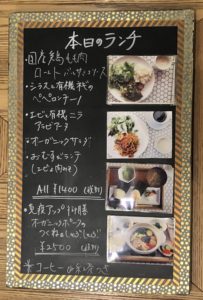 本日のランチ
・国産鶏もも肉
ロースト バルサミコソース
・シラスと有機
ペペロンチーノ
・エビと有機ニラ
アラビアータ
・オーガニックサラダ
・おむすびランチ
All ¥1400 (税別)
・免疫アップ御膳
オーガニックポーク
つくねのしゃぶしゃぶ
¥2500 (税別)
※コーヒー or 紅茶つき